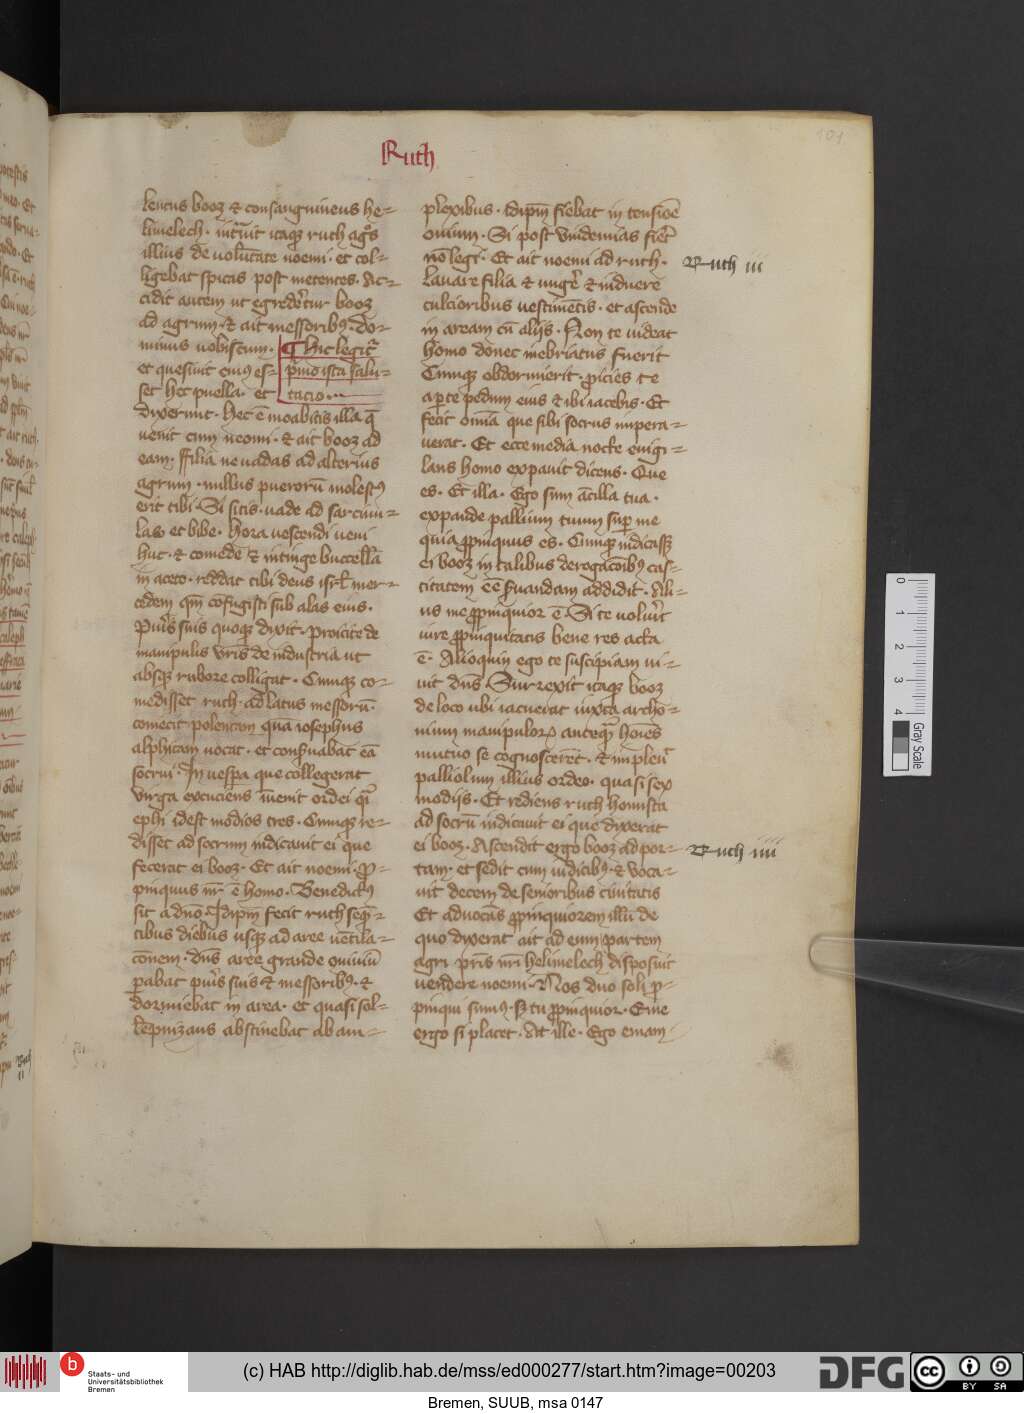 Ruth
101
lentus booz et consanguineus he=
limelech. intrauit itaque ruth agros
illius de uoluntate noemi. et col=
ligebat spicas post metentes. Ac=
cidit autem ut egrederetur booz
ad agrum. et ait messoribus. do=
minus uobiscum. ¶ Hic legitur
et quesiuit cuius es= primo ista salu=
set hec puella. et tacio
dixerunt. hec ē moabitis illa q̄
uenit cum neomi. et ait booz ad
eam. ffilia ne uadas ad alterius
agrum. nullus puerorū molestus
erit tibi. Si sitis. uade ad sarcinu=
las et bibe. hora uescendi ueni
huc. et comedē et intinge buccellā
in aceto. reddat tibi deus isrl mer=
cedem qm̄ cōfugisti sub alas eius.
Pueris suis quoque dixit. proicite de
manipulis uris de industria ut
absque rubore colligat. Cumque co=
medisset ruth ad latus messorū.
comecit polentam quā iosephus
alphicam uocat. et conseruabat eā
socrui. In uespera que collegerat
uirga excuciens inuenit ordei qi
ephi idest modios tres. Cumque re=
disset ad socrum indicauit ei que
fecerat ei booz. Et ait noemi. pro=
pinquus nr ē homo. Benedictus
sit a dn̄o. Idipm̄ fecit ruth sequē=
tibus diebus usque ad aree uētila=
cōnem. dn̄s aree grande conuiuiū
parabat pueris suis et messoribus. et
dormiebat in area. et quasi sol=
lempnizans abstinebat ab am=
plexibus. Idipm̄ fiebat in tensiōe
ouium. Si post uindemias fieret
nō legi. Et ait noemi ad ruth.
Ruth iii
Lauare filia et ungere et induere
culcioribus uestimētis. et ascende
in aream cū aliis. Non te uideat
homo donec inebriatus fuerit
Cumque obdormierit. proicies te
a parte pedum eius et ibi iacebis. Et
fecit omīa que sibi socrus impera=
uerat. Et ecce media nocte euigi=
lans homo expauit dicens. Que
es. Et illa. Ego sum ācilla tua.
expande pallium tuum super me
quia propinquus es. Cumque indicasset
ei booz in talibus derogacōibus cas=
titatem eē seruandam addidit. Ali=
us me propinquior ē. Si te uoluerit
iure propinquitatis bene res acta
ē. Alioquin ego te suscipiam ui=
uit dn̄s Surrexit itaque booz
de loco ubi iacuerat iuxta archo=
nium manipulorum antequam hoīes
mutuo se cognoscerēt. et impleuit
palliolum illius ordeo. quasi sex
modiis. Et rediens ruth honusta
ad socrū indicauit ei que dixerat
ei booz. Ascendit ergo booz ad por=
Ruth iiii
tam. et sedit cum iudicibus. et uoca=
uit decem de senioribus ciuitatis
Et aduocās propinquiorem illū de
quo dixerat ait ad eum partem
agri patris nri helimelech disposuit
uendere noemi. Nos duo soli pro=
pinqui sumus. Set tu propinquior. Eme
ergo si placet. Ait ille. Ego emam
0
1
2
3
4
Gray Scale
b
Staats- und
Universitätsbibliothek
Bremen
(c) HAB http://diglib.hab.de/mss/ed000277/start.htm?image=00203
DFG
cc
BY SA
Bremen, SUUB, msa 0147